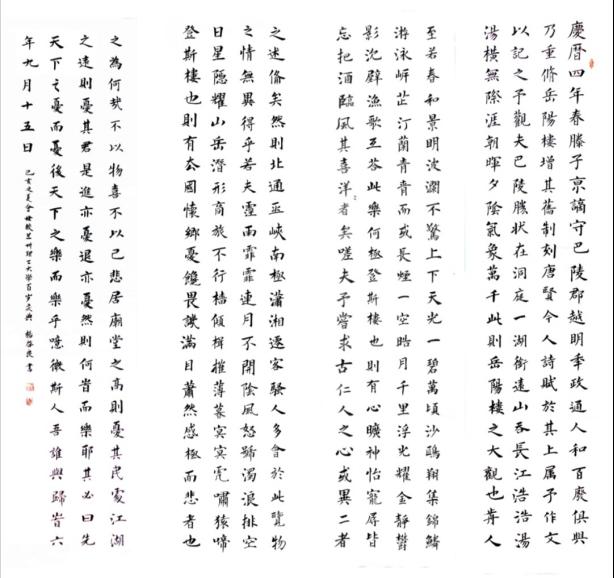 慶曆四年春滕子京謫守巴陵郡越明年政通人和百廢俱興
乃重脩岳陽樓增其舊制刻唐賢今人詩賦於其上屬予作文
以記之予觀夫巴陵勝狀在洞庭一湖銜遠山吞長江浩浩湯
湯橫無際涯朝暉夕陰氣象萬千此則岳陽樓之大觀也歬人
至若春和景明波瀾不驚上下天光一碧萬頃沙鷗翔集錦鱗
游泳岸芷汀蘭青青而或長煙一空皓月千里浮光耀金靜鬱
影沉璧漁歌互答此樂何極登斯樓也則有心曠神怡寵辱皆
忘把酒臨風其喜洋者矣嗟夫予嘗求古仁人之心或異二者
之述俻矣然則北通巫峽南極瀟湘遷客騷人多會於此覽物
之情無異得乎若夫霪雨霏霏連月不開陰風怒號濁浪排空
日星隱耀山岳潛形商旅不行檣傾楫摧薄暮冥冥虎嘯猿啼
登斯樓也則有去國懷鄉憂讒畏譏滿目蕭然感極而悲者也
之為何哉不以物喜不以己悲居廟堂之高則憂其民處江湖
之遠則憂其君是進亦憂退亦憂然則何時而樂耶其必曰先
天下之憂而憂後天下之樂而樂乎噫微斯人吾誰與歸時六
年九月十五日
州理工大學 書